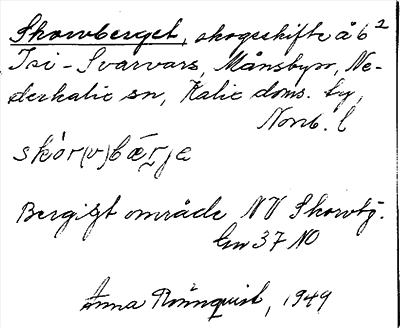 Skorvberget, skogsskifte å 6²
Isi-Svarvars, Månsbyn, Ne-
derkalix sn, Kalix doms. by,
Norrb. l
skór(v)bærjə
Bergigt område NV Skorvbj.
Gen 37 NO
Anna Rönnquist, 1949